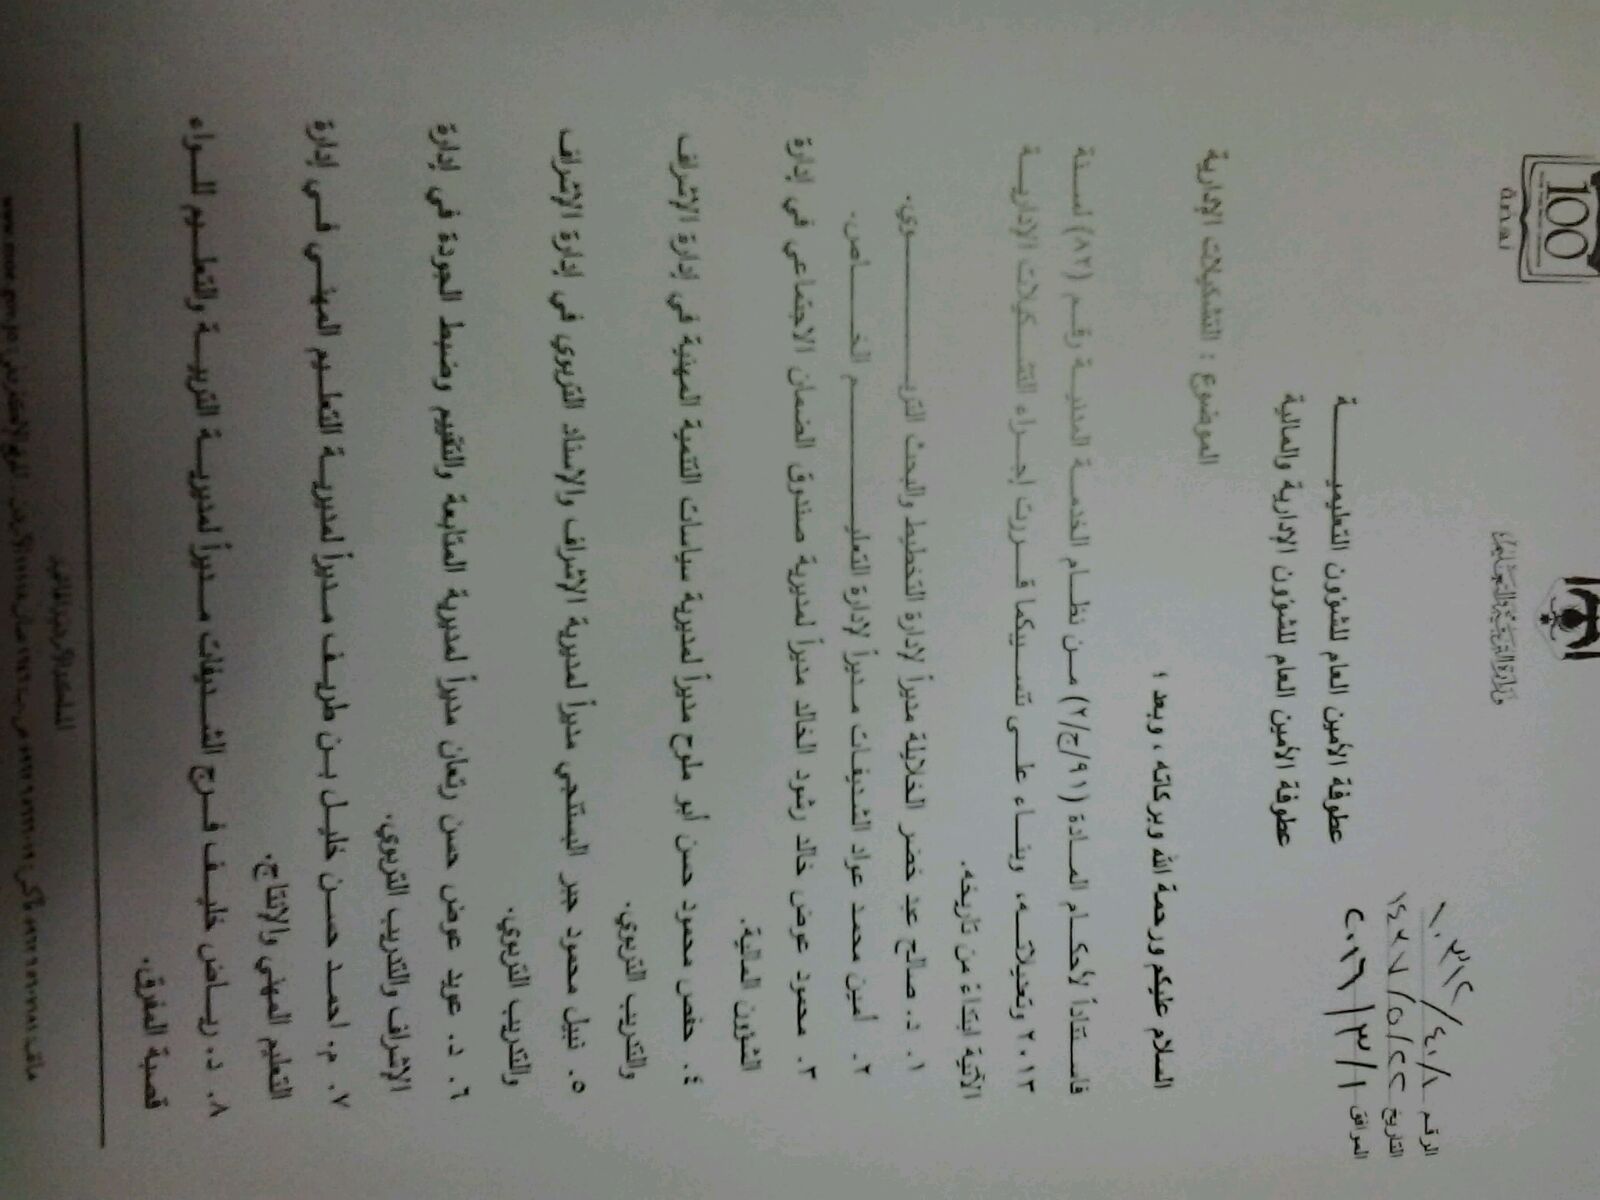 100
نهضة
وزارة التربية والتعليم
الرقم ١٠٣١٢/٤١/٨
التاريخ ١٤٣٧/٥/٢٢
الموافق ٢٠١٦/٣/١
عطوفة الأمين العام للشؤون التعليميـــــــة
عطوفة الأمين العام للشؤون الإدارية والمالية
الموضوع : التشكيلات الإدارية
السلام عليكم ورحمة الله وبركاته ، وبعد ؛
فاستناداً لأحكام المادة (٩١/ج/٢) من نظام الخدمة المدنية رقم (٨٢) لسنة
٢٠١٣ وتعديلاته، وبناء على تنسيبكما قررت إجراء التشكيلات الإدارية
الآتية ابتداءً من تاريخه.
١. د. صالح خضر الخلايلة مديراً لإدارة التخطيط والبحث التربـــــــوي.
٢. أمين محمد عواد الشديفات مديراً لإدارة التعليـــــــم الخــــاص.
٣. محمود عوض خالد رشود الخالد مديراً لمديرية صندوق الضمان الاجتماعي في إدارة
الشؤون المالية.
٤. حفص محمود حسن أبو ملوح مديراً لمديرية سياسات التنمية المهنية في إدارة الإشراف
والتدريب التربوي.
٥. نبيل محمود جبر البستنجي مديراً لمديرية الإشراف والإسناد التربوي في إدارة الإشراف
والتدريب التربوي.
٦. د. عويد عوض حسن رتعان مديراً لمديرية المتابعة والتقييم وضبط الجودة في إدارة
الإشراف والتدريب التربوي.
٧. م. احمد حسن خليل بن طريف مديراً لمديرية التعليم المهني في إدارة
التعليم المهني والإنتاج.
٨. د. رياض خليف فرج الشديفات مديراً لمديرية التربية والتعليم للواء
قصبة المفرق.